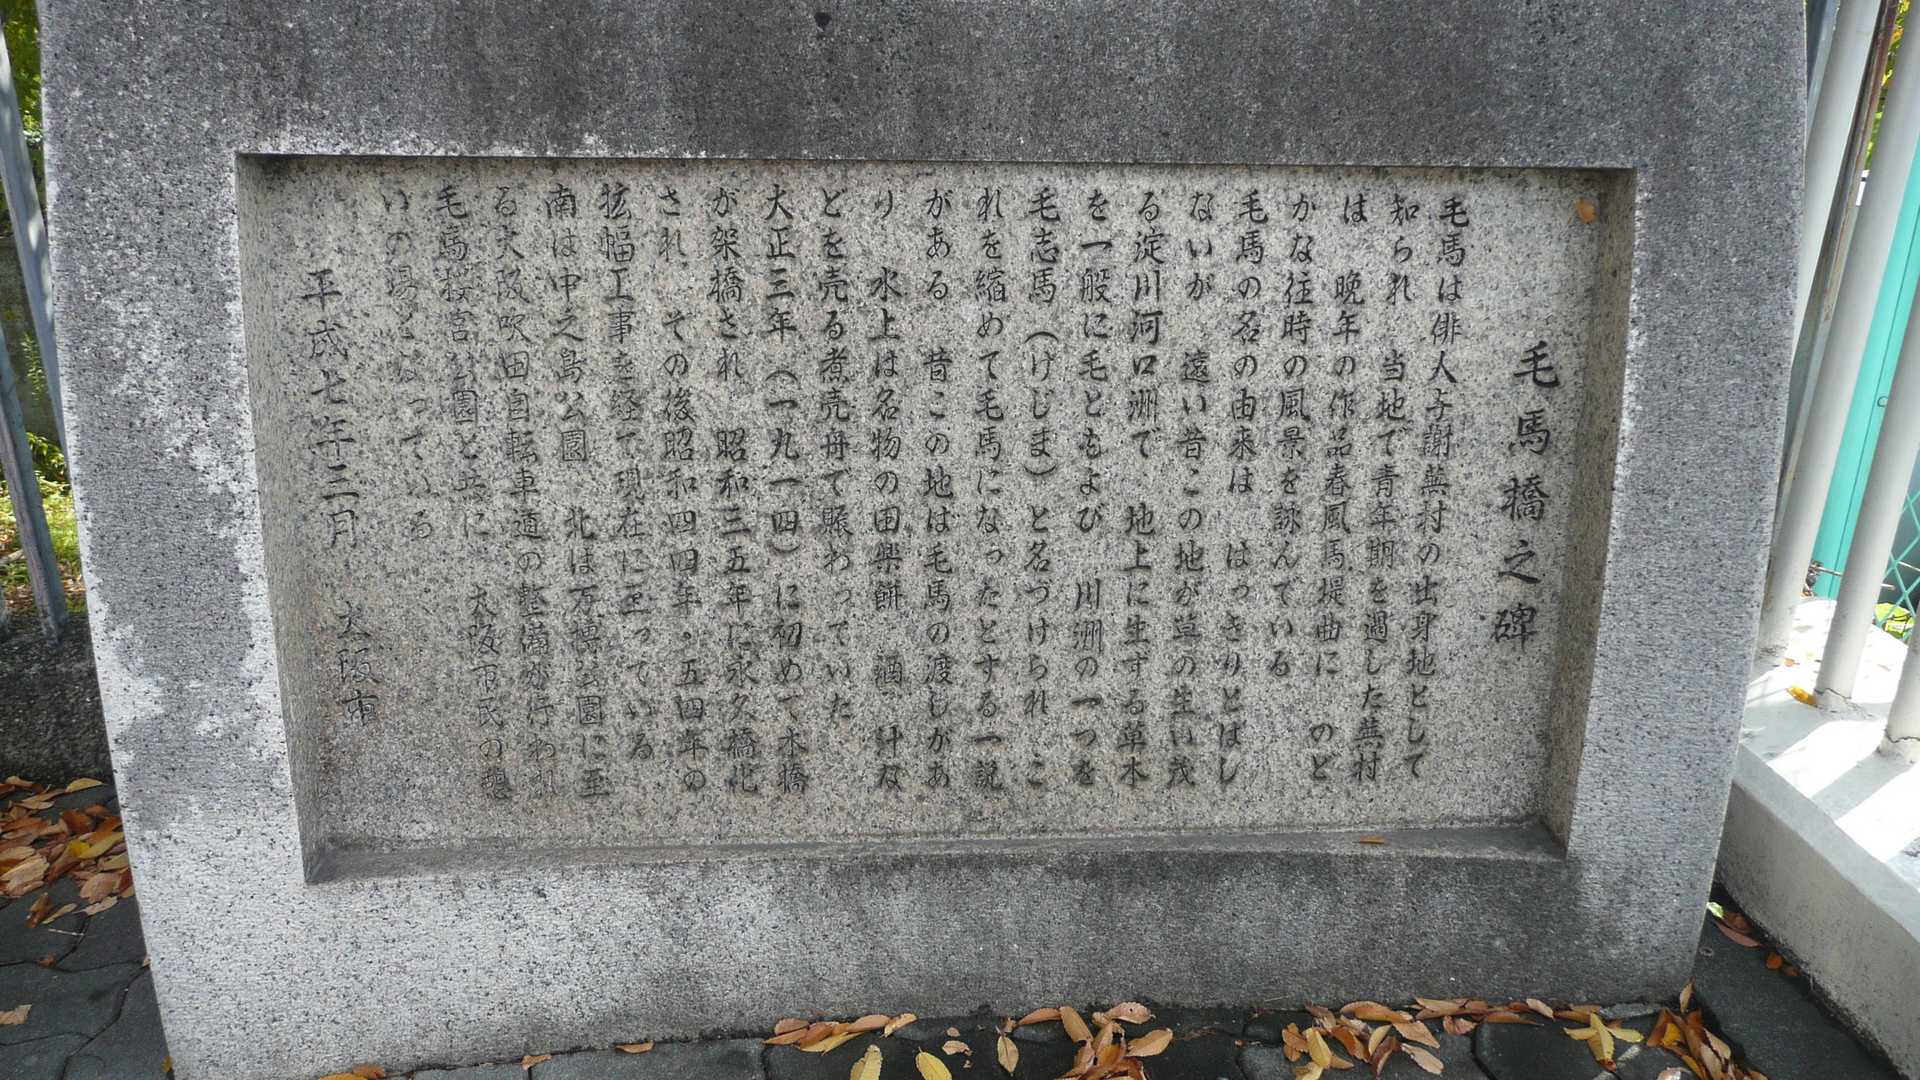 毛馬橋之碑
毛馬は俳人与謝蕪村の出身地として
知られ 当地で青年期を過した蕪村
は 晩年の作品春風馬堤曲に のど
かな往時の風景を詠んでいる
毛馬の名の由来は はっきりとはし
ないが 遠い昔この地が草の生い茂
る淀川河口洲で 地上に生ずる草木
を一般に毛ともよび 川洲の一つを
毛志馬（けじま）と名づけられ こ
れを縮めて毛馬になったとする一説
がある 昔この地は毛馬の渡しがあ
り 水上は名物の田楽餅 酒 汁な
どを売る煮売舟で賑わっていた
大正三年（一九一四）に初めて木橋
が架橋され 昭和三五年に永久橋化
され その後昭和四四年・五四年の
拡幅工事を経て現在に至っている
南は中之島公園 北は万博公園に至
る大阪吹田自転車道の整備が行われ
毛馬桜宮公園と共に 大阪市民の憩
いの場となっている
平成七年三月 大阪市